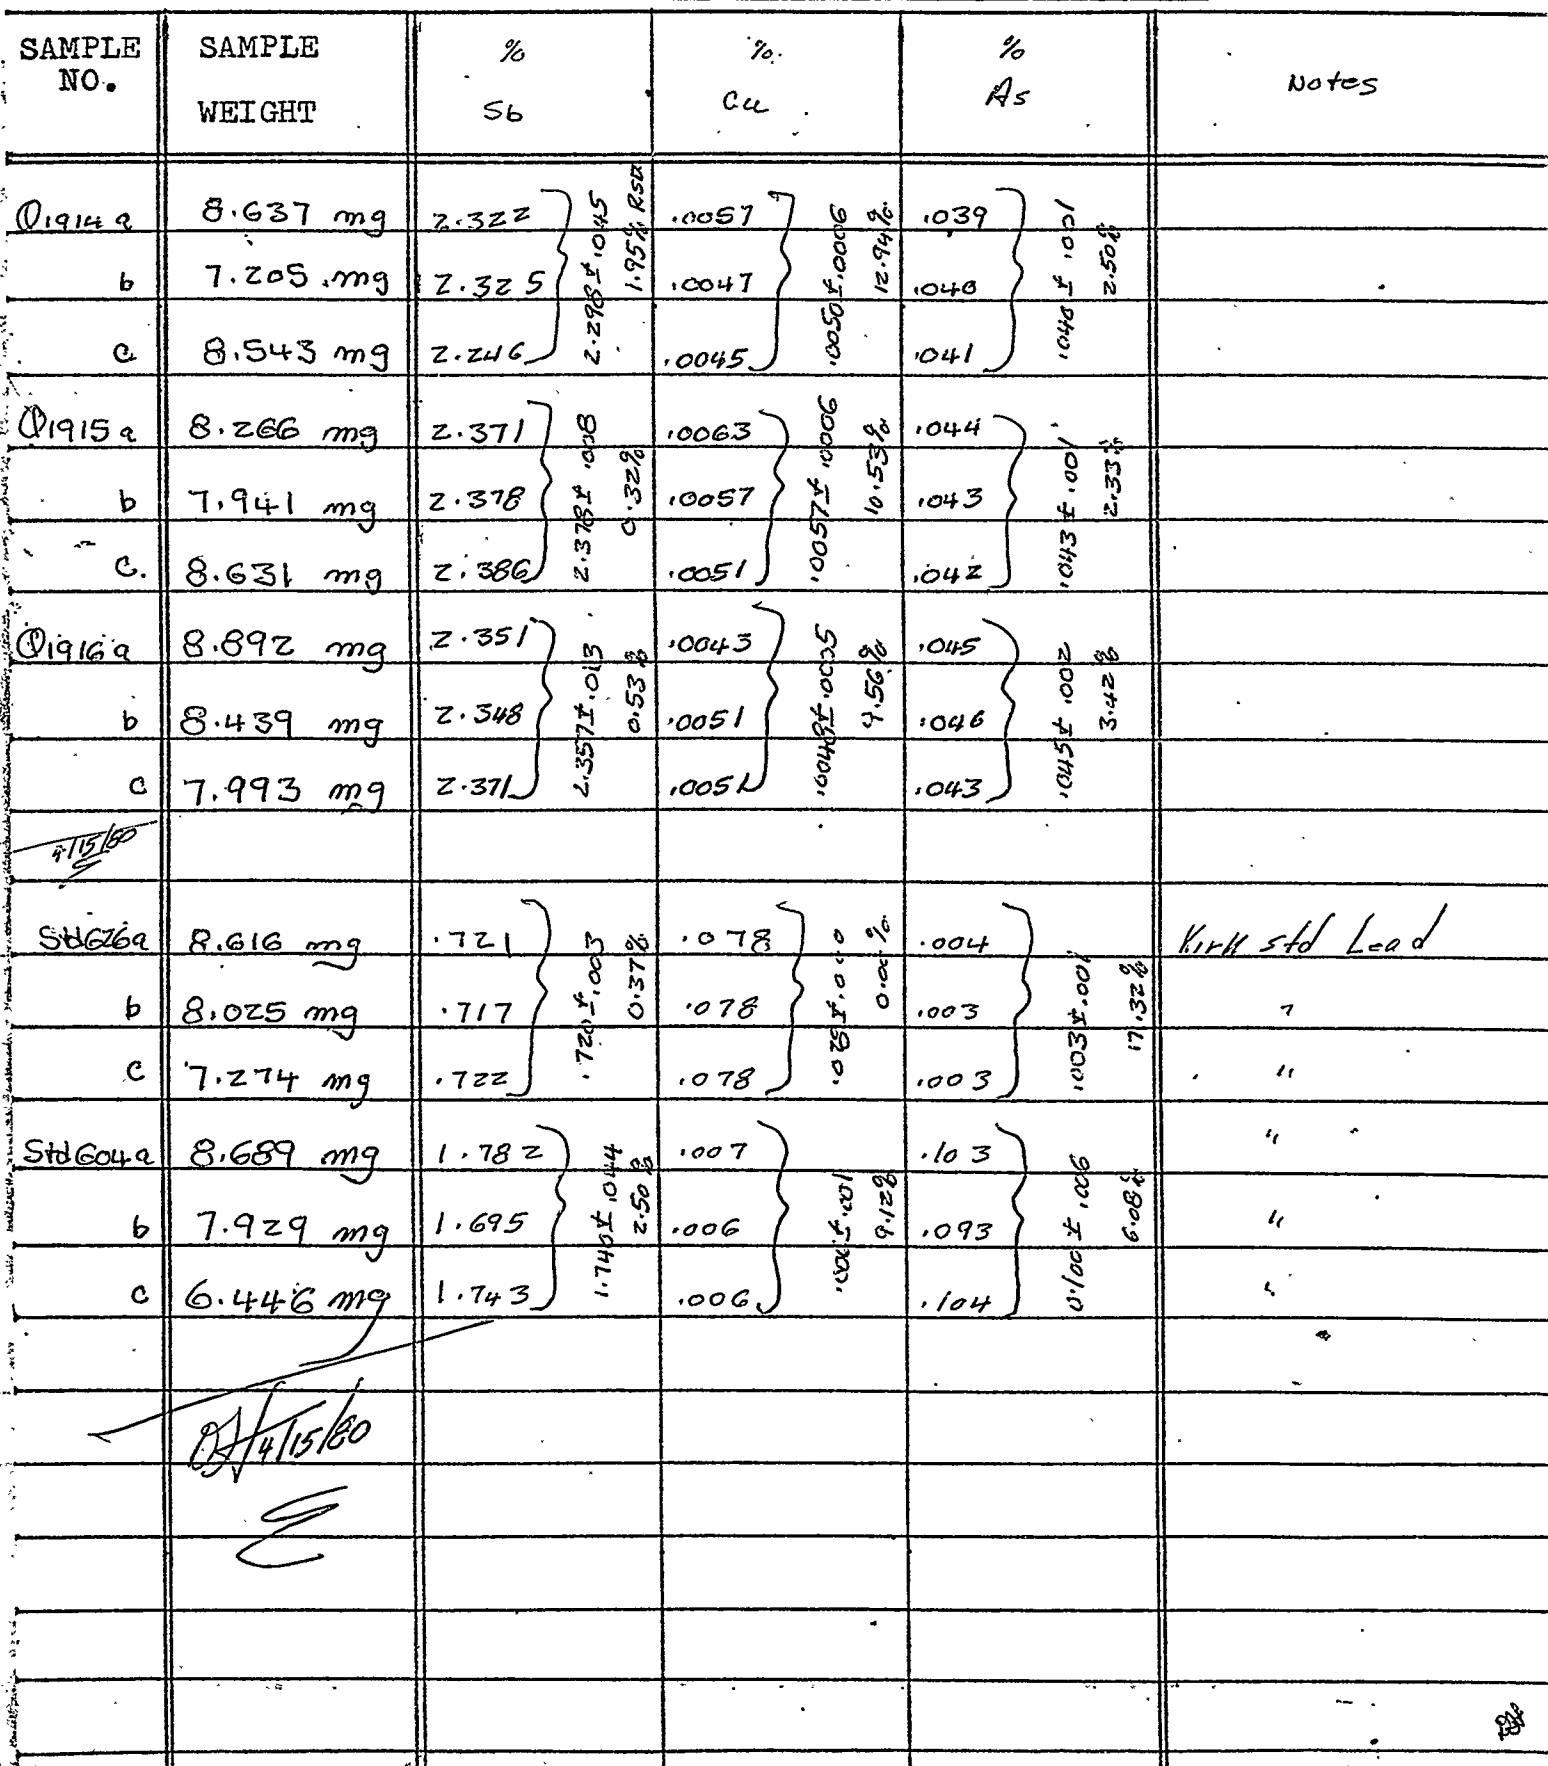 SAMPLE NO. SAMPLE WEIGHT % Sb %. Cu % As Notes
Q1914 a 8.637 mg 2.322 .0057 .039
b 7.205 mg 2.325 .0047 .040
c 8.543 mg 2.246 .0045 .041
2.298 ± .045 1.95% RSD .0050 ± .0006 12.94% .040 ± .001 2.50%
Q1915 a 8.266 mg 2.371 .0063 .044
b 7.941 mg 2.378 .0057 .043
c. 8.631 mg 2.386 .0051 .042
2.378 ± .008 0.32% .0057 ± .0006 10.53% .043 ± .001 2.33%
Q1916 a 8.892 mg 2.351 .0043 .045
b 8.439 mg 2.348 .0051 .046
c 7.993 mg 2.371 .0051 .043
2.357 ± .013 0.53% .0048 ± .0005 9.56% .045 ± .002 3.42%
4/15/80
Std626a 8.616 mg .721 .078 .004 Kirk std Lead
b 8.025 mg .717 .078 .003 "
c 7.274 mg .722 .078 .003 "
.720 ± .003 0.37% .078 ± .000 0.00% .003 ± .001 17.32%
Std604a 8.689 mg 1.782 .007 .103 "
b 7.929 mg 1.695 .006 .093 "
c 6.446 mg 1.743 .006 .104 "
1.740 ± .044 2.50% .006 ± .001 9.12% 0.100 ± .006 6.08%
4/15/80